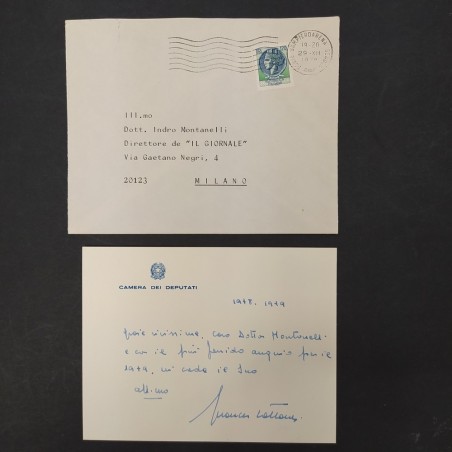 19-20
Ill.mo
Dott. Indro Montanelli
Direttore de "IL GIORNALE"
Via Gaetano Negri, 4
20123 MILANO
CAMERA DEI DEPUTATI
1978. 1979
grazie vivissime, caro Dottor Montanelli
e con il più fervido augurio per il
1979, mi creda il Suo
aff.mo
Francesco